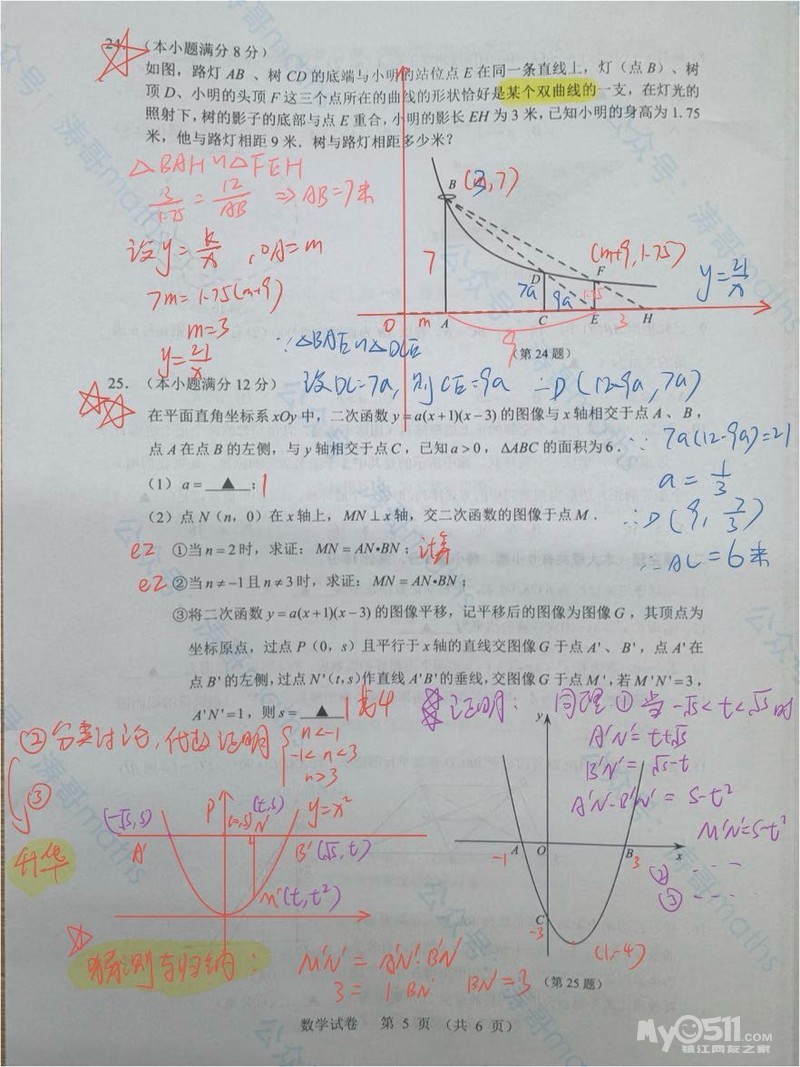 24.（本小题满分 8 分）
如图，路灯 AB 、树 CD 的底端与小明的站位点 E 在同一条直线上，灯（点 B）、树
顶 D、小明的头顶 F 这三个点所在的曲线的形状恰好是某个双曲线的一支，在灯光的
照射下，树的影子的底部与点 E 重合，小明的影长 EH 为 3 米，已知小明的身高为 1.75
米，他与路灯相距 9 米．树与路灯相距多少米？
△BAH∽△FEH
3/1.75 = 12/AB ⇒ AB=7米
设 y=k/x , OA=m
7m=1.75(m+9)
m=3
y=21/x
B (3,7)
(m+9, 1.75)
D F
7 7a 9a 1.75
y=21/x
O m A C E 3 H
9
（第 24 题）
∵△BAE∽△DCE
设DC=7a, 则CE=9a ∴D(12-9a, 7a)
∵ 7a(12-9a)=21
a=1/3
∴D(9, 7/3)
∴AC=6米
25.（本小题满分 12 分）
在平面直角坐标系 xOy 中，二次函数 y=a(x+1)(x−3) 的图像与 x 轴相交于点 A 、B，
点 A 在点 B 的左侧，与 y 轴相交于点 C，已知 a>0，ΔABC 的面积为 6．
（1）a= ▲ ；1
（2）点 N（n，0）在 x 轴上，MN⊥x 轴，交二次函数的图像于点 M．
ez ①当 n=2 时，求证：MN=AN•BN；计算
ez ②当 n≠−1 且 n≠3 时，求证：MN=AN•BN；
③将二次函数 y=a(x+1)(x−3) 的图像平移，记平移后的图像为图像 G，其顶点为
坐标原点，过点 P（0，s）且平行于 x 轴的直线交图像 G 于点 A'、B'，点 A' 在
点 B' 的左侧，过点 N'(t,s) 作直线 A'B' 的垂线，交图像 G 于点 M'，若 M'N'=3，
A'N'=1，则 s= ▲ 1或4
②分类讨论，代数证明 { n<-1
-1<n<3
n>3
③
升华
证明：同理 ① 当 -√s<t<√s 时
A'N'=t+√s
B'N'=√s-t
A'N'·B'N'=s-t²
M'N'=s-t²
② ----
③ ----
P (t,s) y=x²
(-√s,s) (0,s) N'
A' B'(√s,t)
M'(t,t²)
y
A O B x
-1 3
C
-3
(1,-4)
猜测与归纳： M'N'=A'N'·B'N'
3=1·BN' BN'=3
（第 25 题）
数学试卷 第 5 页 （共 6 页）
My0511.COM
镇江网友之家
公众号：涛哥maths